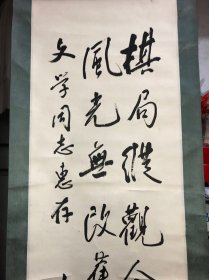 棋局縱觀今
風光無改舊
文学同志惠存